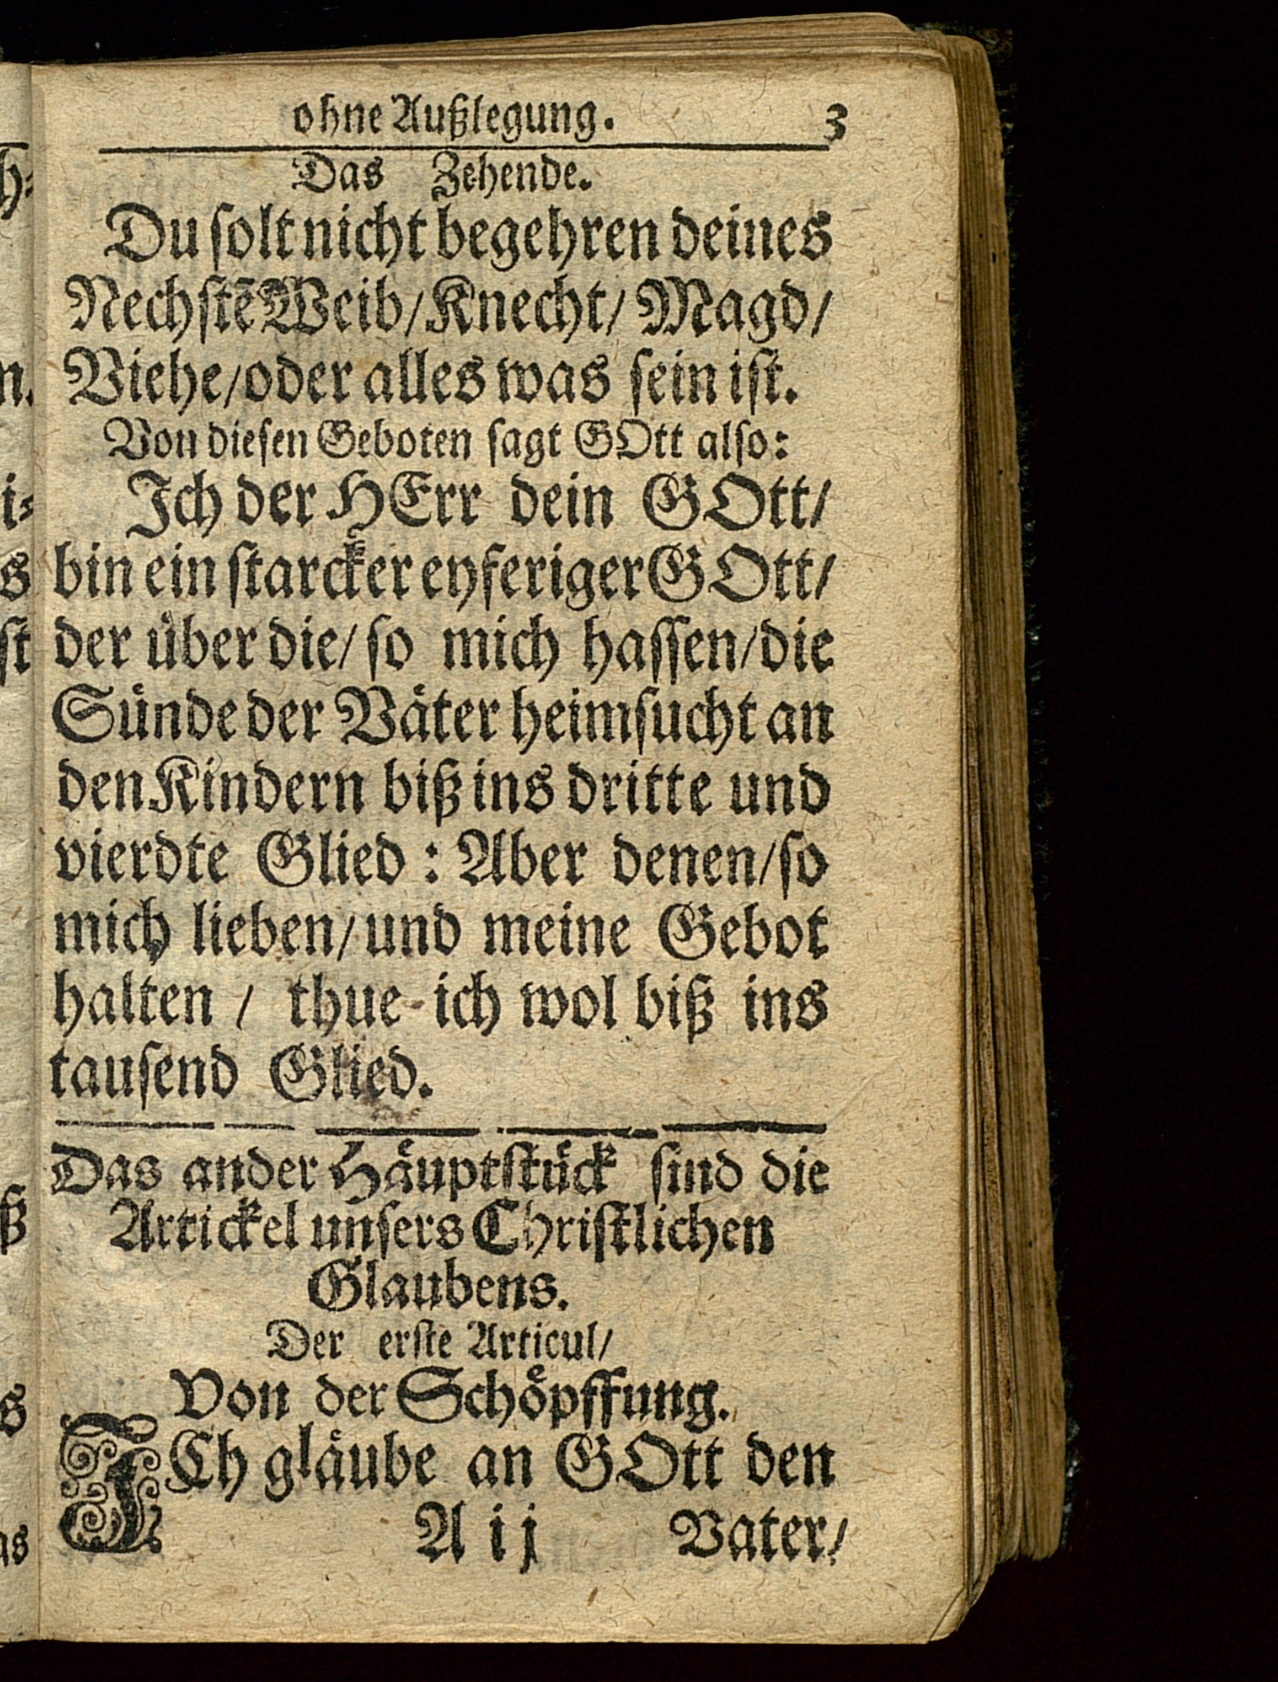 ohne Außlegung. 3
Das Zehende.
Du solt nicht begehren deines
Nechstẽ Weib/ Knecht/ Magd/
Viehe/ oder alles was sein ist.
Von diesen Geboten sagt GOtt also:
Ich der HErr dein GOtt/
bin ein starcker eyferiger GOtt/
der über die/ so mich hassen/ die
Sünde der Väter heimsucht an
den Kindern biß ins dritte und
vierdte Glied: Aber denen/ so
mich lieben/ und meine Gebot
halten / thue ich wol biß ins
tausend Glied.
Das ander Häuptstück sind die
Artickel unsers Christlichen
Glaubens.
Der erste Articul/
Von der Schöpffung.
ICh gläube an GOtt den
A ij Vater/